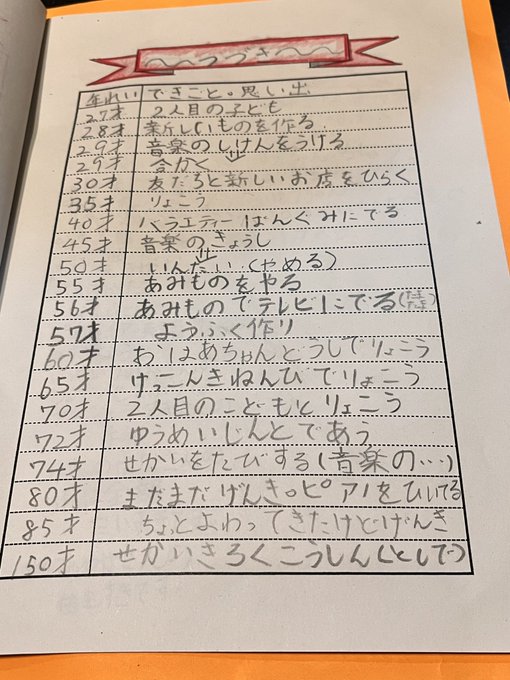 つづき
年れい できごと。思い出
27才 2人目の子ども
28才 新しいものを作る
29才 音楽のしけんをうける
29才 合かく
30才 友だちと新しいお店をひらく
35才 りょこう
40才 バラエティーばんぐみにでる
45才 音楽のきょうし
50才 いんたい(やめる)
55才 あみものをやる
56才 あみものでテレビにでる(たまたま)
57才 ようふく作り
60才 おばあちゃんどうしでりょこう
65才 けっこんきねんびでりょこう
70才 2人目のこどもとりょこう
72才 ゆうめいじんとであう
74才 せかいをたびする(音楽の…)
80才 まだまだげんき。ピアノをひいてる
85才 ちょっとよわってきたけどげんき
150才 せかいきろくこうしん(としで)